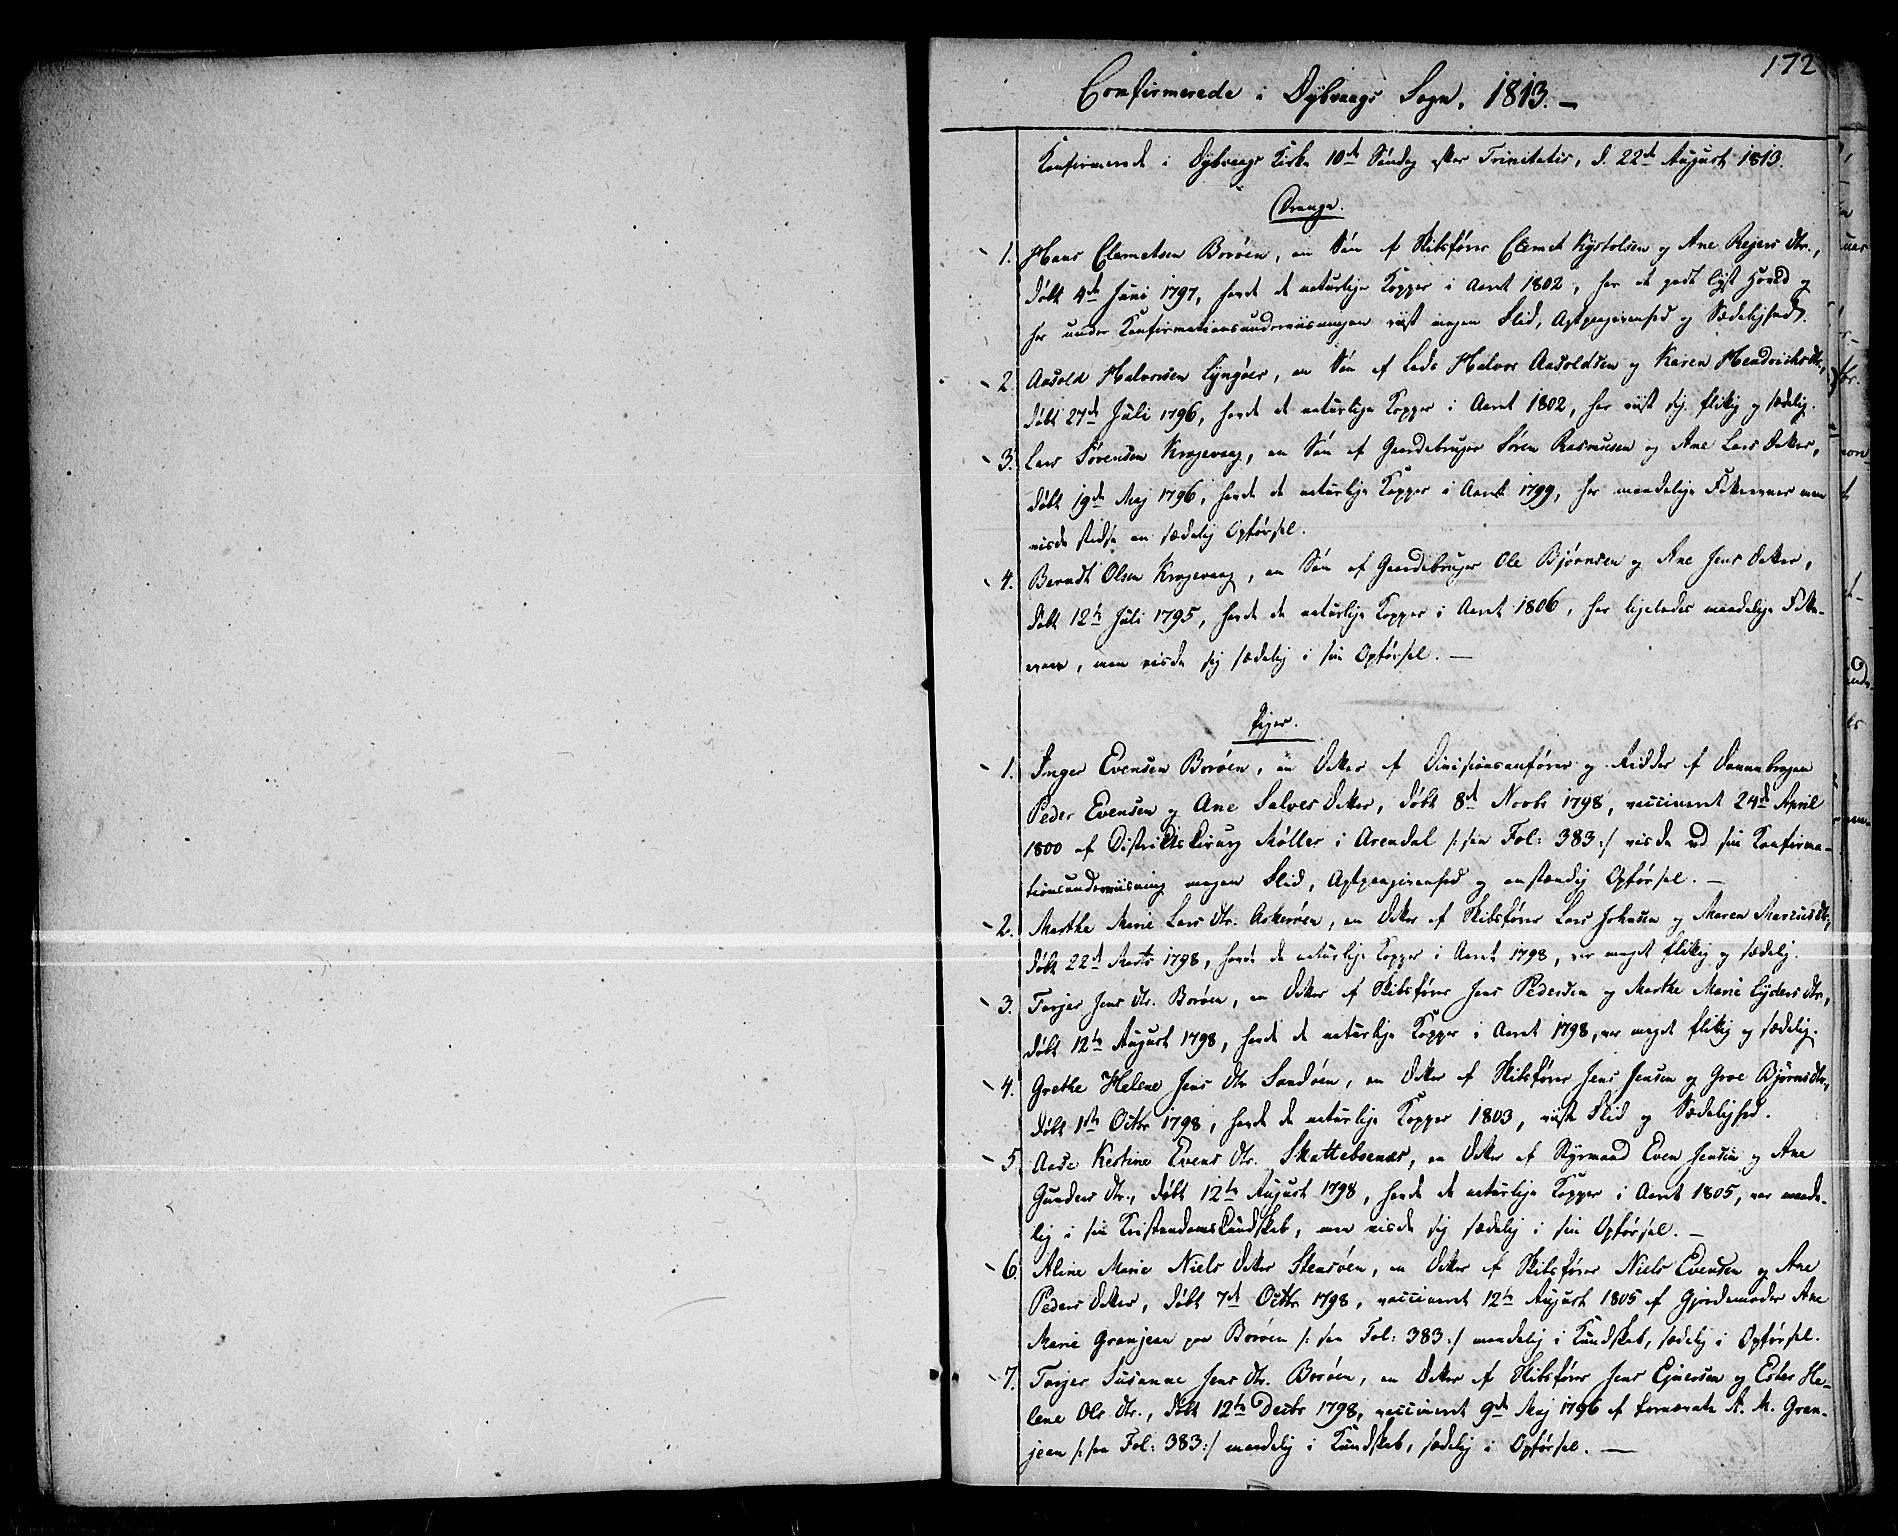 172
Confirmerede i Dybvaags Sogn. 1813.–
Konfirmerede i Dybvaags Kirke 10de Søndag efter Trinitatis, d. 22de August 1813.
Drenge.
1. Hans Clemetsen Borøen, en Søn af Skibsfører Clemet Kystolsen og Ane Rejers Dtr.,
døbt 4de Juni 1797, havde de naturlige Kopper i Aaret 1802, har et godt lyst Hoved og
har under Konfirmationsunderviisningen viist megen Flid, Agtpaagivenhed og Sædelighed.
2. Aasold Halvorsen Lyngøer, en Søn af Lods Halvor Aasoldsen og Karen Hendrichsdtr.,
døbt 27de Juli 1796, havde de naturlige Kopper i Aaret 1802, har viist sig flitig og sædelig.
3. Lars Sørensen Krogevaag, en Søn af Gaardebruger Søren Rasmusen og Ane Lars Datter,
døbt 19de Maj 1796, havde de naturlige Kopper i Aaret 1799, har maadelige Naturevner men
viste stedse en sædelig Opførsel.
4. Berndt Olsen Krogevaag, en Søn af Gaardebruger Ole Bjørnsen og Ane Jens Datter,
døbt 12te Juli 1795, havde de naturlige Kopper i Aaret 1806, har ligeledes maadelige
evner, men viste sig sædelig i sin Opførsel. —
Piger.
1. Inger Evensen Borøen, en Datter af Divisionsanfører og Ridder af Dannebrogen
Peder Evensen og Ane Salves Datter, døbt 8de Novbr 1798, vaccineret 24de April
1800 af Distriktskirurg Møller i Arendal /: see Fol: 383 :/ viste ved sin Konfirma-
tionsunderviisning megen Flid, Agtpaagivenhed og anstændig Opførsel. —
2. Marthe Marie Lars Dtr. Askerøen, en Datter af Skibsfører Lars Johnsen og Maren Marcusdtr,
døbt 22de Marts 1798, havde de naturlige Kopper i Aaret 1798, var meget flitig og sædelig.
3. Torjer Jens Dtr. Borøen, en Datter af Skibsfører Jens Pedersen og Marthe Marie Lyders Dtr.,
døbt 12te August 1798, havde de naturlige Kopper i Aaret 1798, var meget flitig og sædelig.
4. Grethe Helene Jens Dtr Sandøen, en Datter af Skibsfører Jens Jensen og Groe Bjørnsdtr,
døbt 1ste Octbr 1798, havde de naturlige Kopper 1803, viiste Flid og Sædelighed.
5. Aase Kestine Evens Dtr. Skotteboenæs, en Datter af Styrmand Even Jensen og Ane
Gunders Dtr., døbt 12te August 1798, havde de naturlige Kopper i Aaret 1805, var maade-
lig i sin Kristendomskundskab, men viste sig sædelig i sin Opførsel. —
6. Aline Marie Niels Datter Stensøen, en Datter af Skibsfører Niels Evensen og Ane
Peders Datter, døbt 7de Octbr 1798, vaccineret 12te August 1805 af Gjordemoder Ane
Marie Granjean paa Borøen /: see Fol: 383 :/ maadelig i Kundskab, sædelig i Opførsel.
7. Torjer Susanne Jens Dtr. Borøen, en Datter af Skibsfører Jens Ejversen og Ester He-
lene Ols Dtr., døbt 12te Decbr 1798, vaccineret 9de Maj 1796 af fornævnte A. M. Gran-
jean /: see Fol: 383 :/ maadelig i Kundskab, sædelig i Opførsel. —